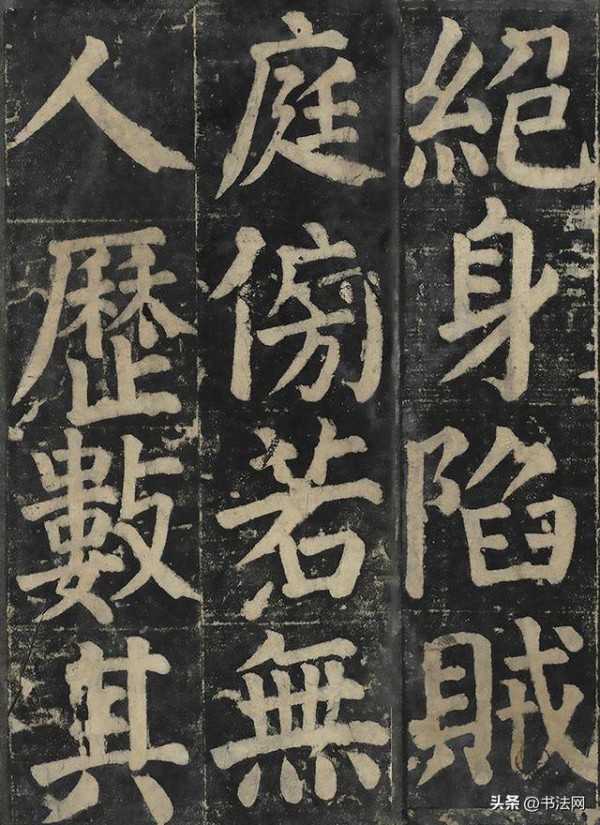 絕身陷賊
庭傍若無
人歷數其
头条 @书法网